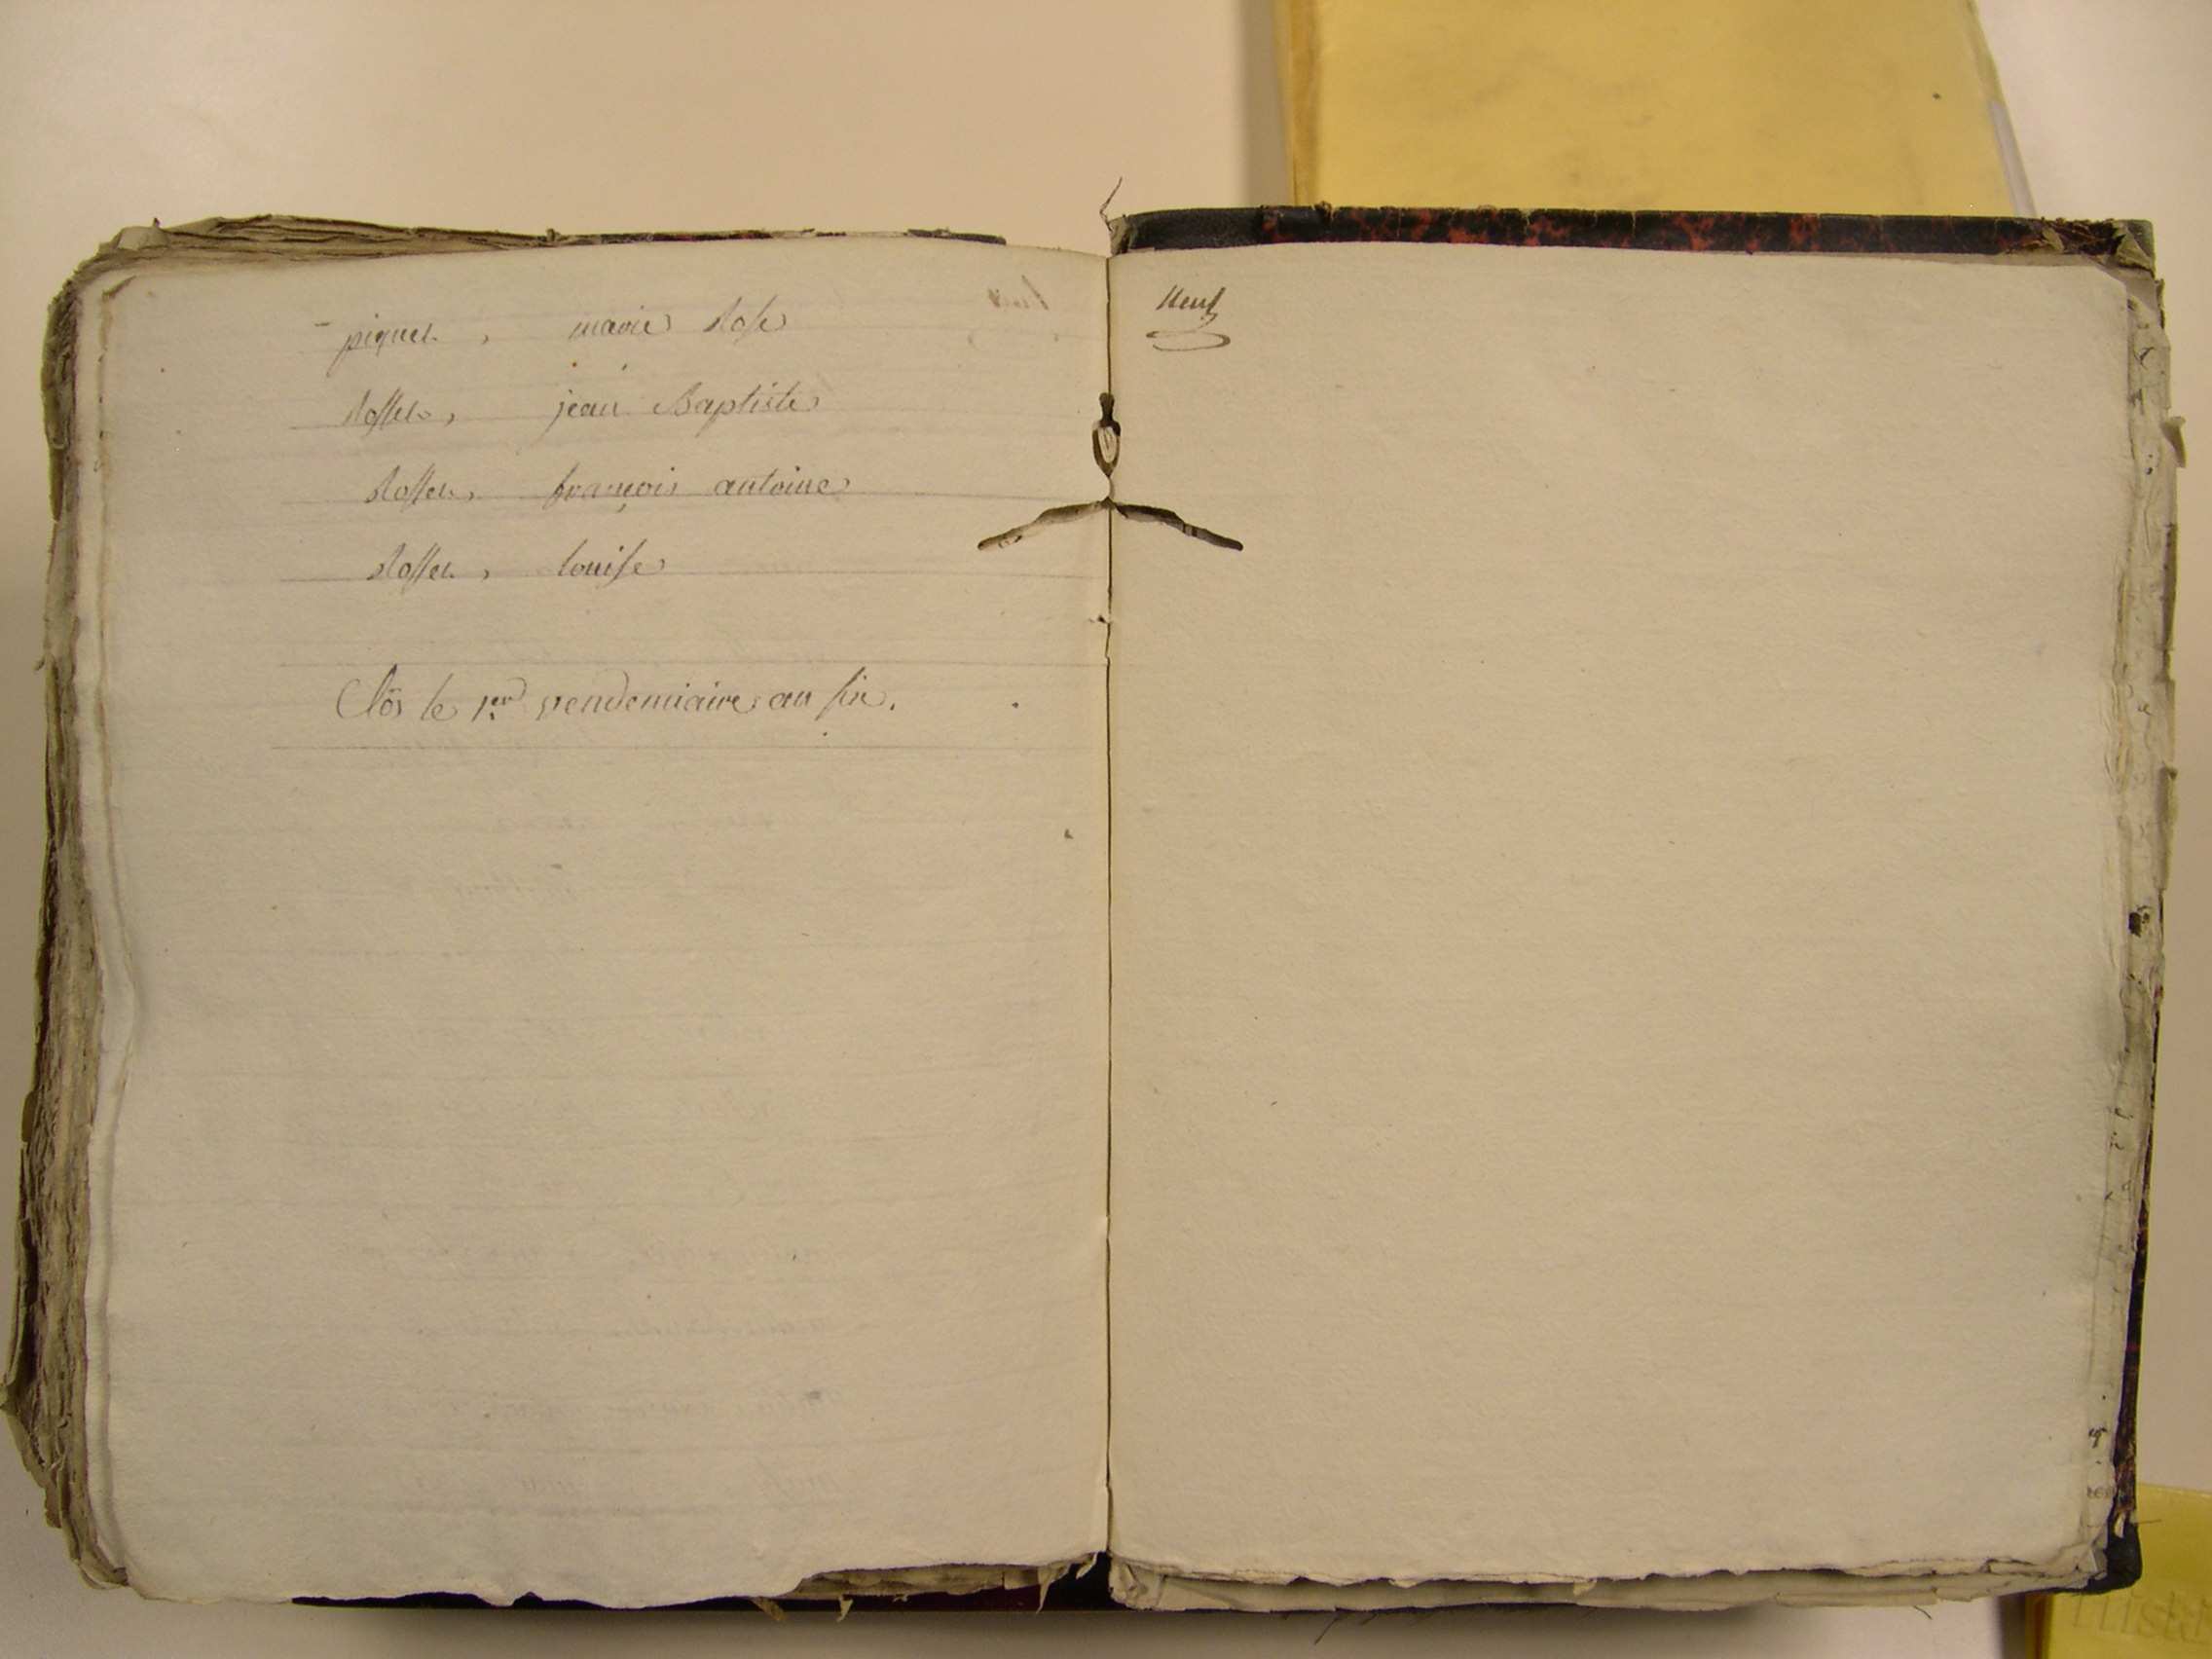 piquet, marie Rose
Rosset, jean Baptiste
Rosset, françois antoine
Rosset, louise
Clôs le 1er vendemiaire an six.
Neuf